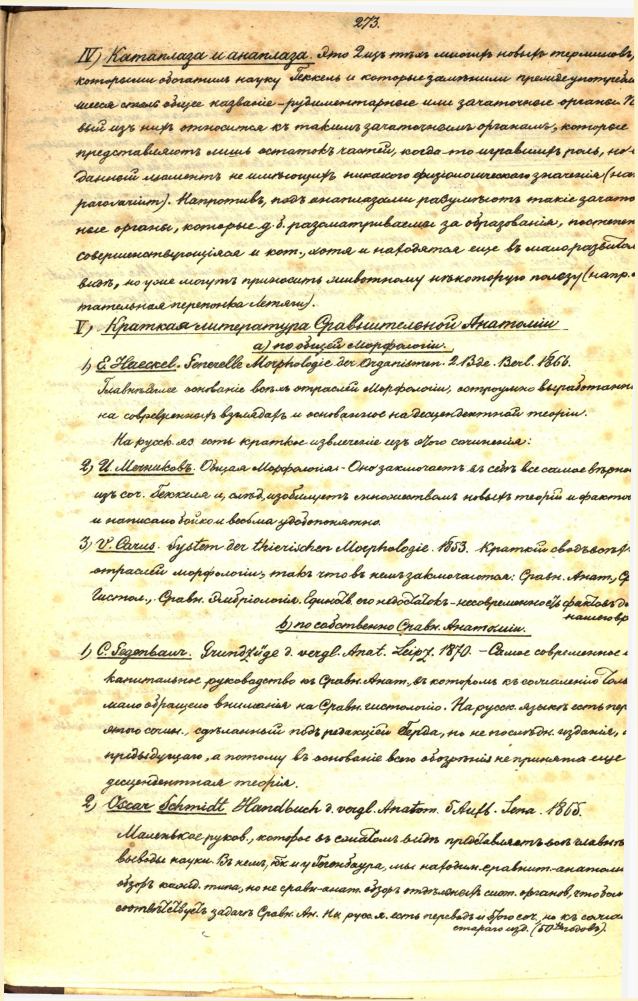 273.
IV) Катаплаза и анаплаза. Это 2 изъ тѣхъ многихъ новыхъ терминовъ,
которыми обогатилъ науку Геккель и которые замѣнили прежде употребля
шееся столь общее названіе – рудиментарные или зачаточные органы. Пе
вый изъ нихъ относится къ такимъ зачаточнымъ органамъ, которые
представляютъ лишь остатокъ частей, когда-то игравшихъ роль, но в
данный моментъ не имѣющихъ никакого физіологическаго значенія (нап
parovarium). Напротивъ, подъ анаплазами разумѣютъ такіе зачато
ные органы, которые д. б. разсматриваемы за образованія, постепен
совершенствующіяся и кот., хотя и находятся еще въ малоразвитом
видѣ, но уже могутъ приносить животному нѣкоторую пользу (напр. 
тательная перепонка Летяги).
V) Краткая литература Сравнительной Анатоміи
а) по общей Морфологіи.
1) E. Haeckel. Generelle Morphologie der Organismen. 2 Bde. Berl. 1866.
Главнѣйшее основаніе всѣхъ отраслей Морфологіи, остроумно выработанн
на современныхъ взглядахъ и основанное на десцендентной теоріи.
На русск. яз есть краткое извлеченіе изъ этого сочиненія:
2) И. Мечниковъ. Общая Морфологія – Оно заключаетъ въ себѣ все самое вѣрно
изъ соч. Геккеля и, слѣд, изобилуетъ множествомъ новыхъ теорій и фактич
и написано бойко и весьма удобопонятно.
3) V. Carus. System der thierischen Morphologie. 1853. Краткій сводъ всѣх
отраслей морфологіи, такъ что въ немъ заключаются: Сравн. Анат., Ср
Гистол., Сравн. Эмбріологія. Единств. его недостатокъ – несовременность фактовъ д
нашего вр
b) по собственно Сравн. Анатоміи.
1) C. Gegenbaur. Grundzüge d. vergl. Anat. Leipz. 1870. – Самое современное и
капитальное руководство къ Сравн. Анат., въ которомъ къ сожалѣнію толь
мало обращено вниманія на Сравн. гистологію. На русск. языкѣ есть пер
этого сочин., сдѣланный подъ редакціей Герда, но не послѣдн. изданія, а
предыдущаго, а потому въ основаніе всего обозрѣнія не принята еще
десцендентная теорія.
2) Oscar Schmidt Handbuch d. vergl. Anatom. 5 Aufl. Jena. 1865.
Маленькое руков., которое въ сжатомъ видѣ представляетъ всѣ главны
выводы науки. Въ немъ, как и у Гегенбаура, мы находим. сравнит.-анатоми
обзоръ кажд. типа, но не сравн.-анат. обзоръ отдѣльныхъ сист. органовъ, что бол
соотвѣтствуетъ задачѣ Сравн. Ан. На русс. я. есть переводъ и этого соч., но къ сожал
стараго изд. (50хъ годовъ).